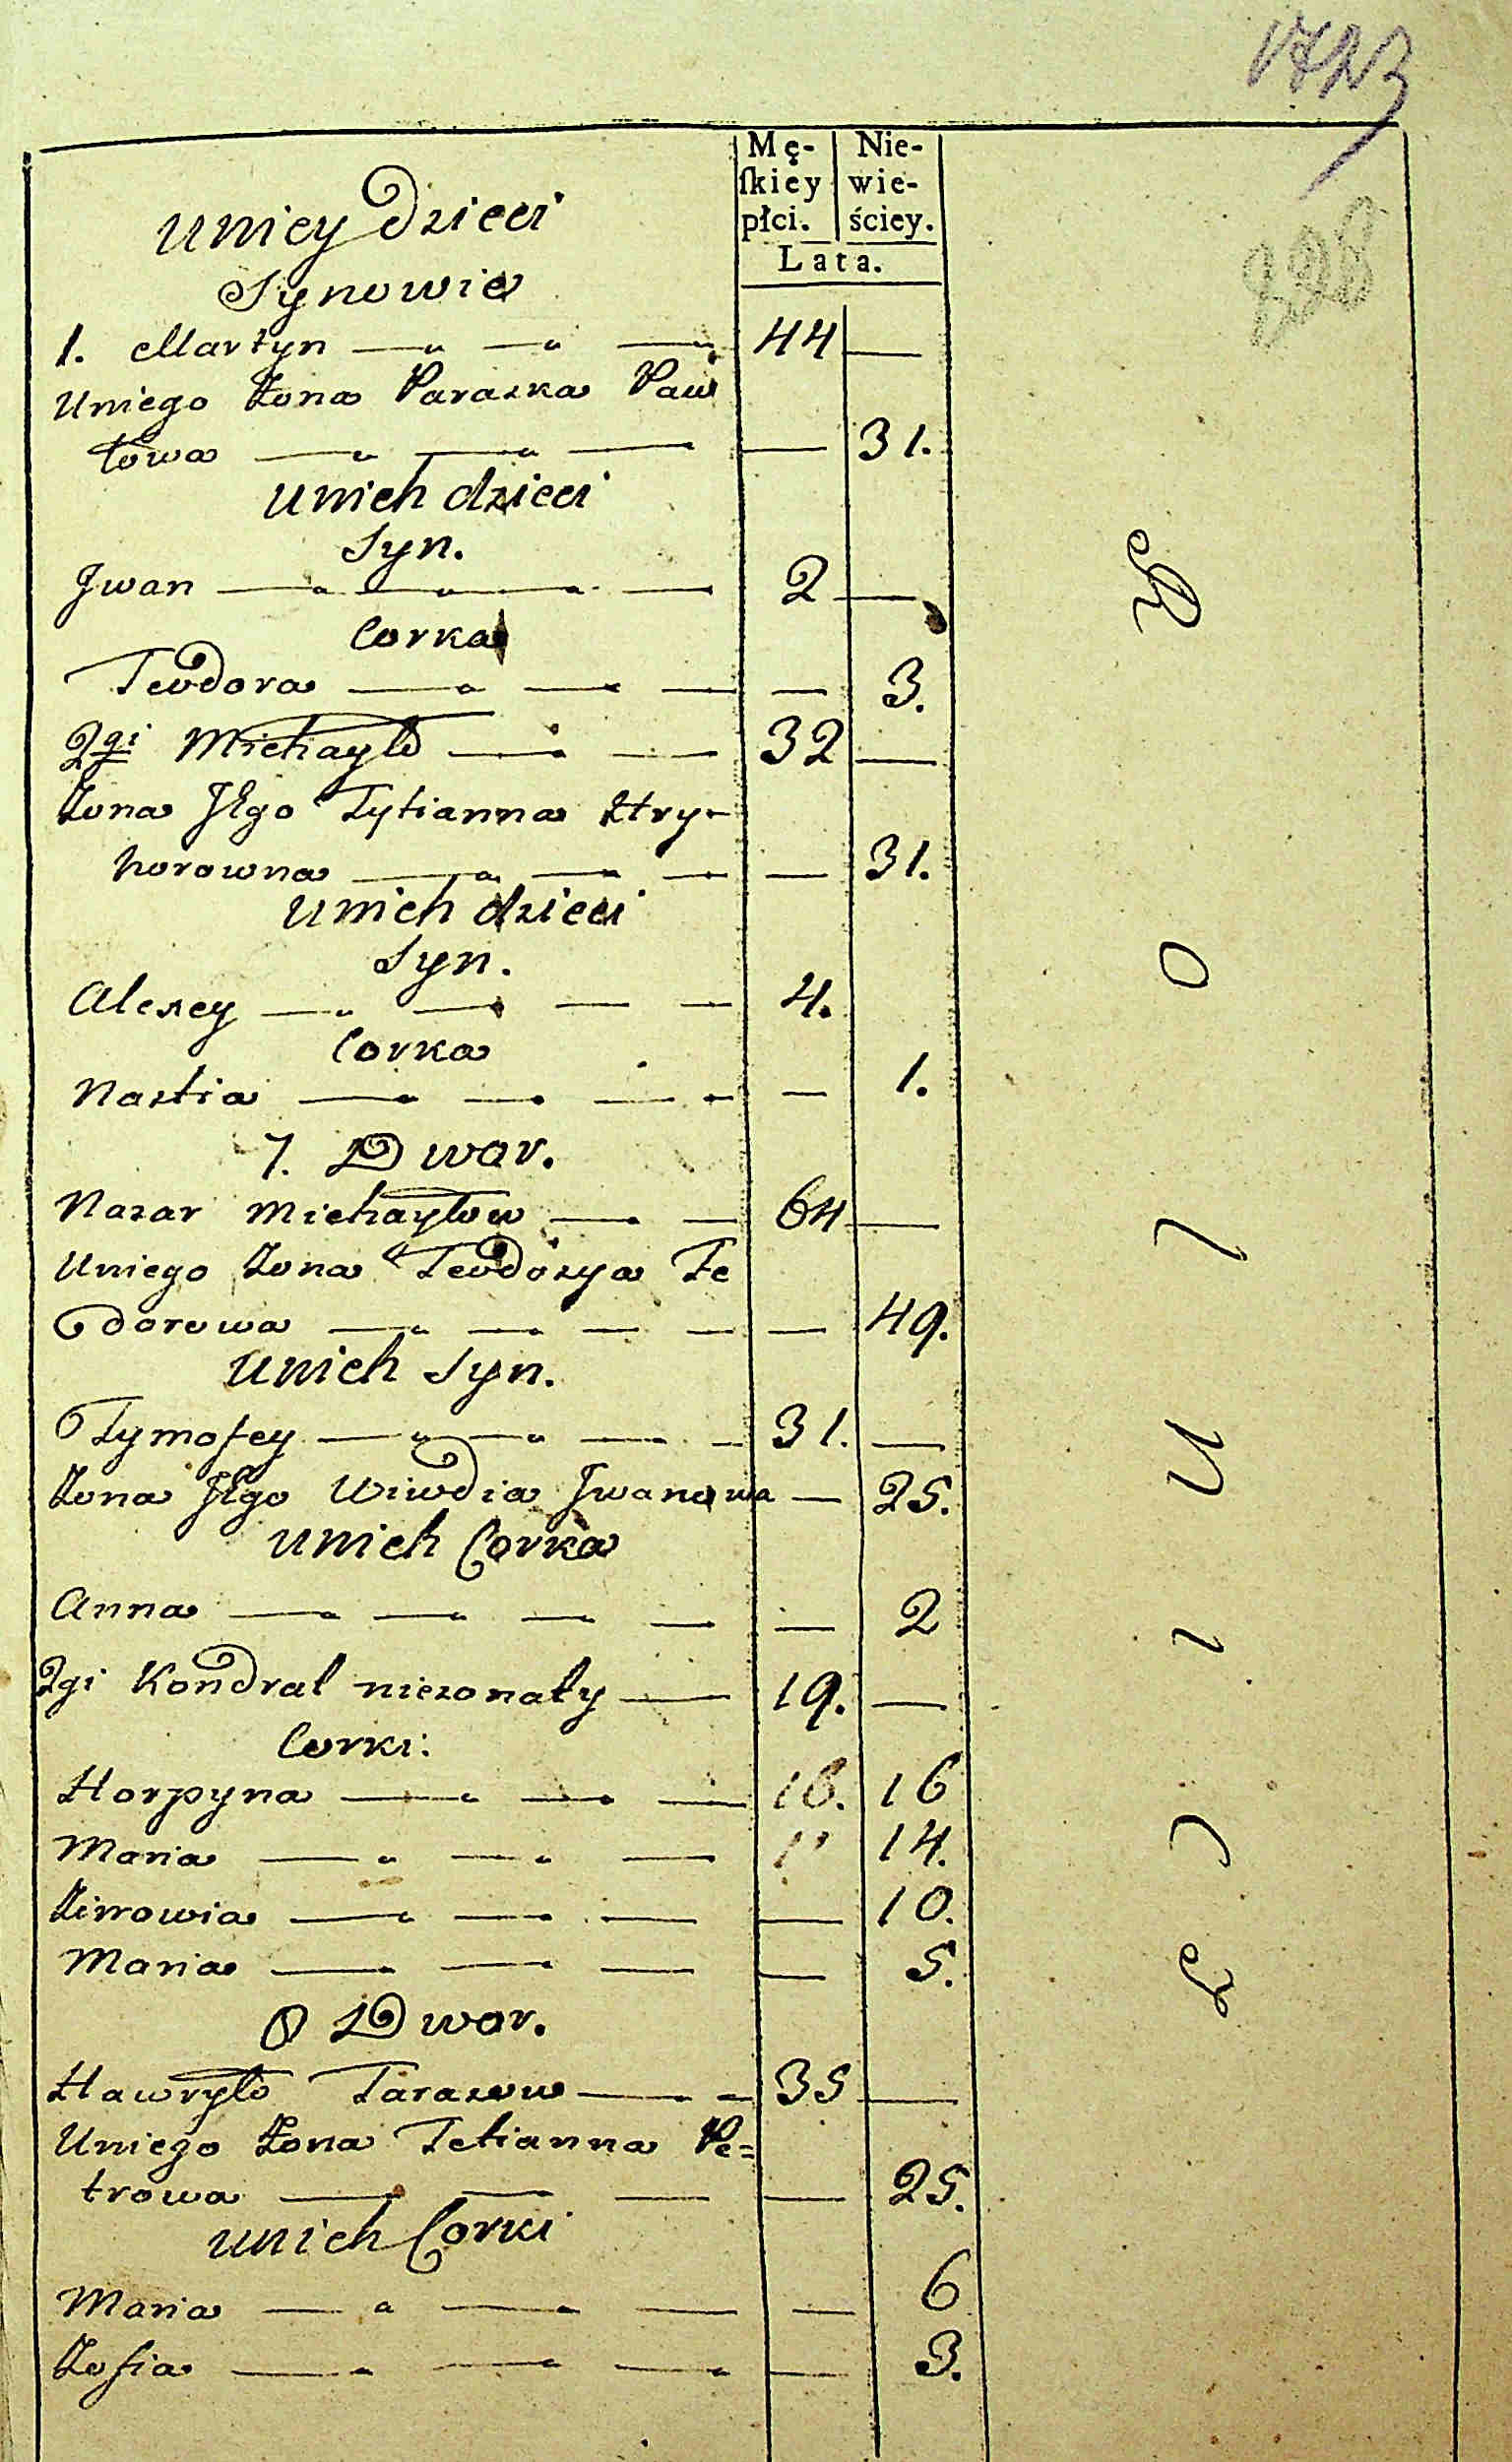 Mę-
skiey
płci.
Nie-
wie-
ściey.
Lata.
Uniey Dzieci
Synowie
1. Martyn 44
Uniego Żona Paraska Paw
łowa 31.
Unich dzieci
Syn.
Jwan 2
Corka
Teodora 3.
2gi Michayło 32
Żona Jego Tytianna Hry-
horowna 31.
Unich dzieci
Syn.
Alexey 4.
Corka
Nastia 1.
7. Dwor.
Nazar Michayłow 64
Uniego Żona Teodozya Fe
dorowa 49.
Unich Syn.
Tymofey 31.
Żona Jego Wiwdia Jwanowa 25.
Unich Corka
Anna 2
2gi Kondrat nieżonaty 19.
Corki:
Horpyna 16. 16
Maria 14.
10.
Maria 5.
8 Dwor.
Hawryło Tarasow 35
Uniego Żona Tetianna Pe=
trowa 25.
Unich Corki
Maria 6
Zofia 3.